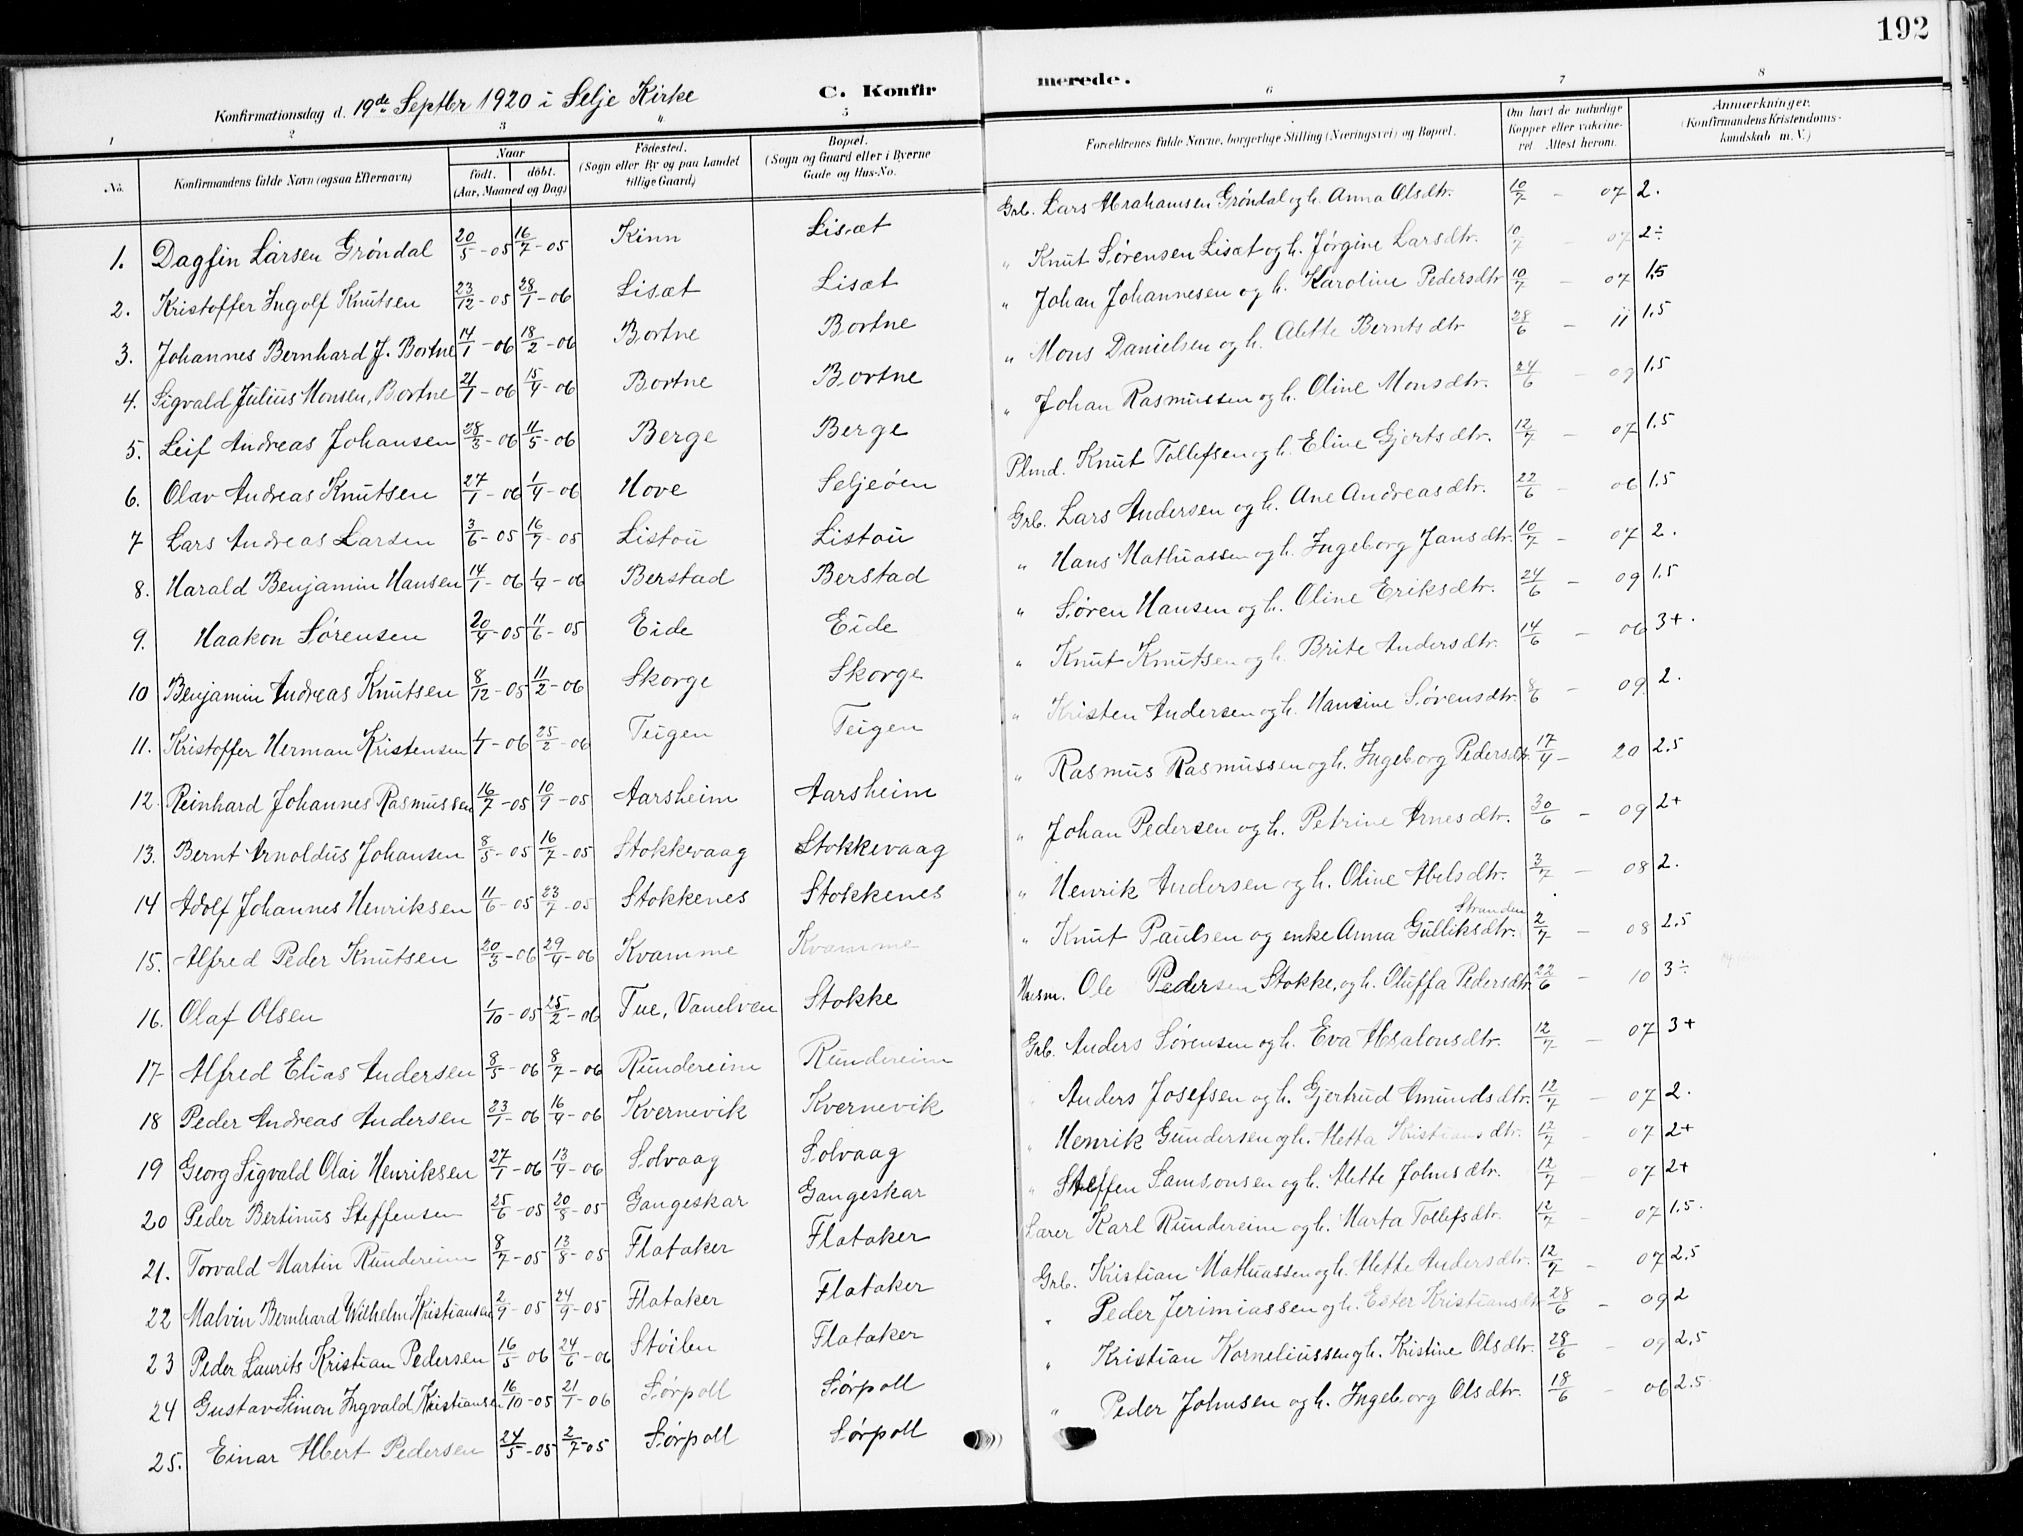 192
C. Konfirmerede.
Konfirmationsdag d. 19de Septbr 1920 i Selje Kirke
1 2 3 " 5 6 7 8
No. Konfirmandens fulde Navn (ogsaa Efternavn) Naar født. døbt. (Aar, Maaned og Dag) Fødested. (Sogn eller By og paa Landet tillige Gaard) Bopæl. (Sogn og Gaard eller i Byerne Gade og Hus-No. Forældrenes fulde Navne, borgerlige Stilling (Næringsvei) og Bopæl. Om havt de naturlige Kopper eller vakcineret. Attest herom. Anmærkninger. (Konfirmandens Kristendomskundskab m. V.)
1. Dagfin Larsen Grøndal 20/5-05 16/7-05 Kinn Lisæt Grb. Lars Abrahamsen Grøndal og h. Anna Olsdtr. 10/7 - 07 2.
2. Kristoffer Ingolf Knutsen 23/12-05 28/1-06 Lisæt Lisæt " Knut Sørensen Lisæt og h. Jørgine Larsdtr. 10/7 - 07 2÷
3. Johannes Bernhard J. Bortne 14/1-06 18/2-06 Bortne Bortne " Johan Johannesen og h. Karoline Pedersdtr 10/7 - 07 1.5
4. Sigvald Julius Monsen, Bortne 21/1-06 15/4-06 Bortne Bortne " Mons Danielsen og h. Alette Berntsdtr 28/6 - 11 1.5
5. Leif Andreas Johansen 28/3-06 11/5-06 Berge Berge " Johan Rasmussen og h. Oline Monsdtr. 24/6 - 09 1.5
6. Olav Andreas Knutsen 27/1-06 1/4-06 Hove Seljeøen Plmd. Knut Tollefsen og h. Eline Gjertsdtr. 12/7 - 07 1.5
7 Lars Andreas Larsen 3/6-05 16/7-05 Listou Listou Grb. Lars Andersen og h. Ane Andreasdtr. 22/6 - 06 1.5
8. Harald Benjamin Hansen 14/1-06 1/4-06 Berstad Berstad " Hans Mathiassen og h. Ingeborg Jansdtr. 10/7 - 07 2.
9. Haakon Sørensen 20/4-05 11/6-05 Eide Eide " Søren Hansen og h. Oline Eriksdtr. 24/6 - 09 1.5
10 Benjamin Andreas Knutsen 8/12-05 11/2-06 Skorge Skorge " Knut Knutsen og h. Brite Andersdtr. 14/6 - 06 3+.
11. Kristoffer Herman Kristensen 1/1-06 25/2-06 Teigen Teigen " Kristen Andersen og h. Hansine Sørensdtr. 8/6 - 09 2.
12. Reinhard Johannes Rasmussen 16/7-05 10/9-05 Aarsheim Aarsheim " Rasmus Rasmussen og h. Ingeborg Pedersdtr 17/4 - 20 2.5
13. Bernt Arnoldus Johansen 8/5-05 16/7-05 Stokkevaag Stokkevaag " Johan Pedersen og h. Petrine Arnesdtr. 30/6 - 09 2+
14 Adolf Johannes Henriksen 11/6-05 23/7-05 Stokkenes Stokkenes " Henrik Andersen og h. Oline Abelsdtr. 3/7 - 08 2.
Stranden
15. Alfred Peder Knutsen 20/3-06 29/4-06 Kvamme Kvamme " Knut Paulsen og enke Anna Gulliksdtr. 2/7 - 08 2.5
16. Olaf Olsen 1/10-05 25/2-06 Tue, Vanelven Stokke Husm. Ole Pedersen Stokke, og h. Oluffa Pedersdtr 22/6 - 10 3÷
17 Alfred Elias Andersen 8/5-06 8/7-06 Rundereim Rundereim Grb. Anders Sørensen og h. Eva Absalonsdtr. 12/7 - 07 3+
18 Peder Andreas Andersen 23/1-06 16/4-06 Kvernevik Kvernevik " Anders Josefsen og h. Gjertrud Amundsdtr. 12/7 - 07 2.
19 Georg Sigvald Olai Henriksen 27/1-06 13/4-06 Solvaag Solvaag " Henrik Gundersen og h. Mette Kristiansdtr. 12/7 - 07 2+
20 Peder Bertinus Steffensen 25/6-05 20/8-05 Gangeskar Gangeskar " Steffen Samsonsen og h. Mette Johnsdtr. 12/7 - 07 2+
21. Torvald Martin Rundereim 8/7-05 13/8-05 Flataker Flataker Lærer Karl Rundereim og h. Marta Tollefsdtr. 12/7 - 07 1.5.
22 Malvin Bernhard Wilhelm Kristiansen 2/9-05 24/9-05 Flataker Flataker Grb. Kristian Mathiassen og h. Mette Andersdtr. 12/7 - 07 2.5
23 Peder Laurits Kristian Pedersen 16/5-06 24/6-06 Støilen Flataker " Peder Jerimiassen og h. Ester Kristiansdtr 28/6 - 09 2
24 Gustav Simon Ingvald Kristiansen 16/10-05 21/1-06 Sørpoll Sørpoll " Kristian Korneliussen og h. Kristine Olsdtr. 28/6 - 09 2.5
25. Einar Albert Pedersen 24/5-05 2/7-05 Sørpoll Sørpoll " Peder Johnsen og h. Ingeborg Olsdtr. 18/6 - 06 2.5